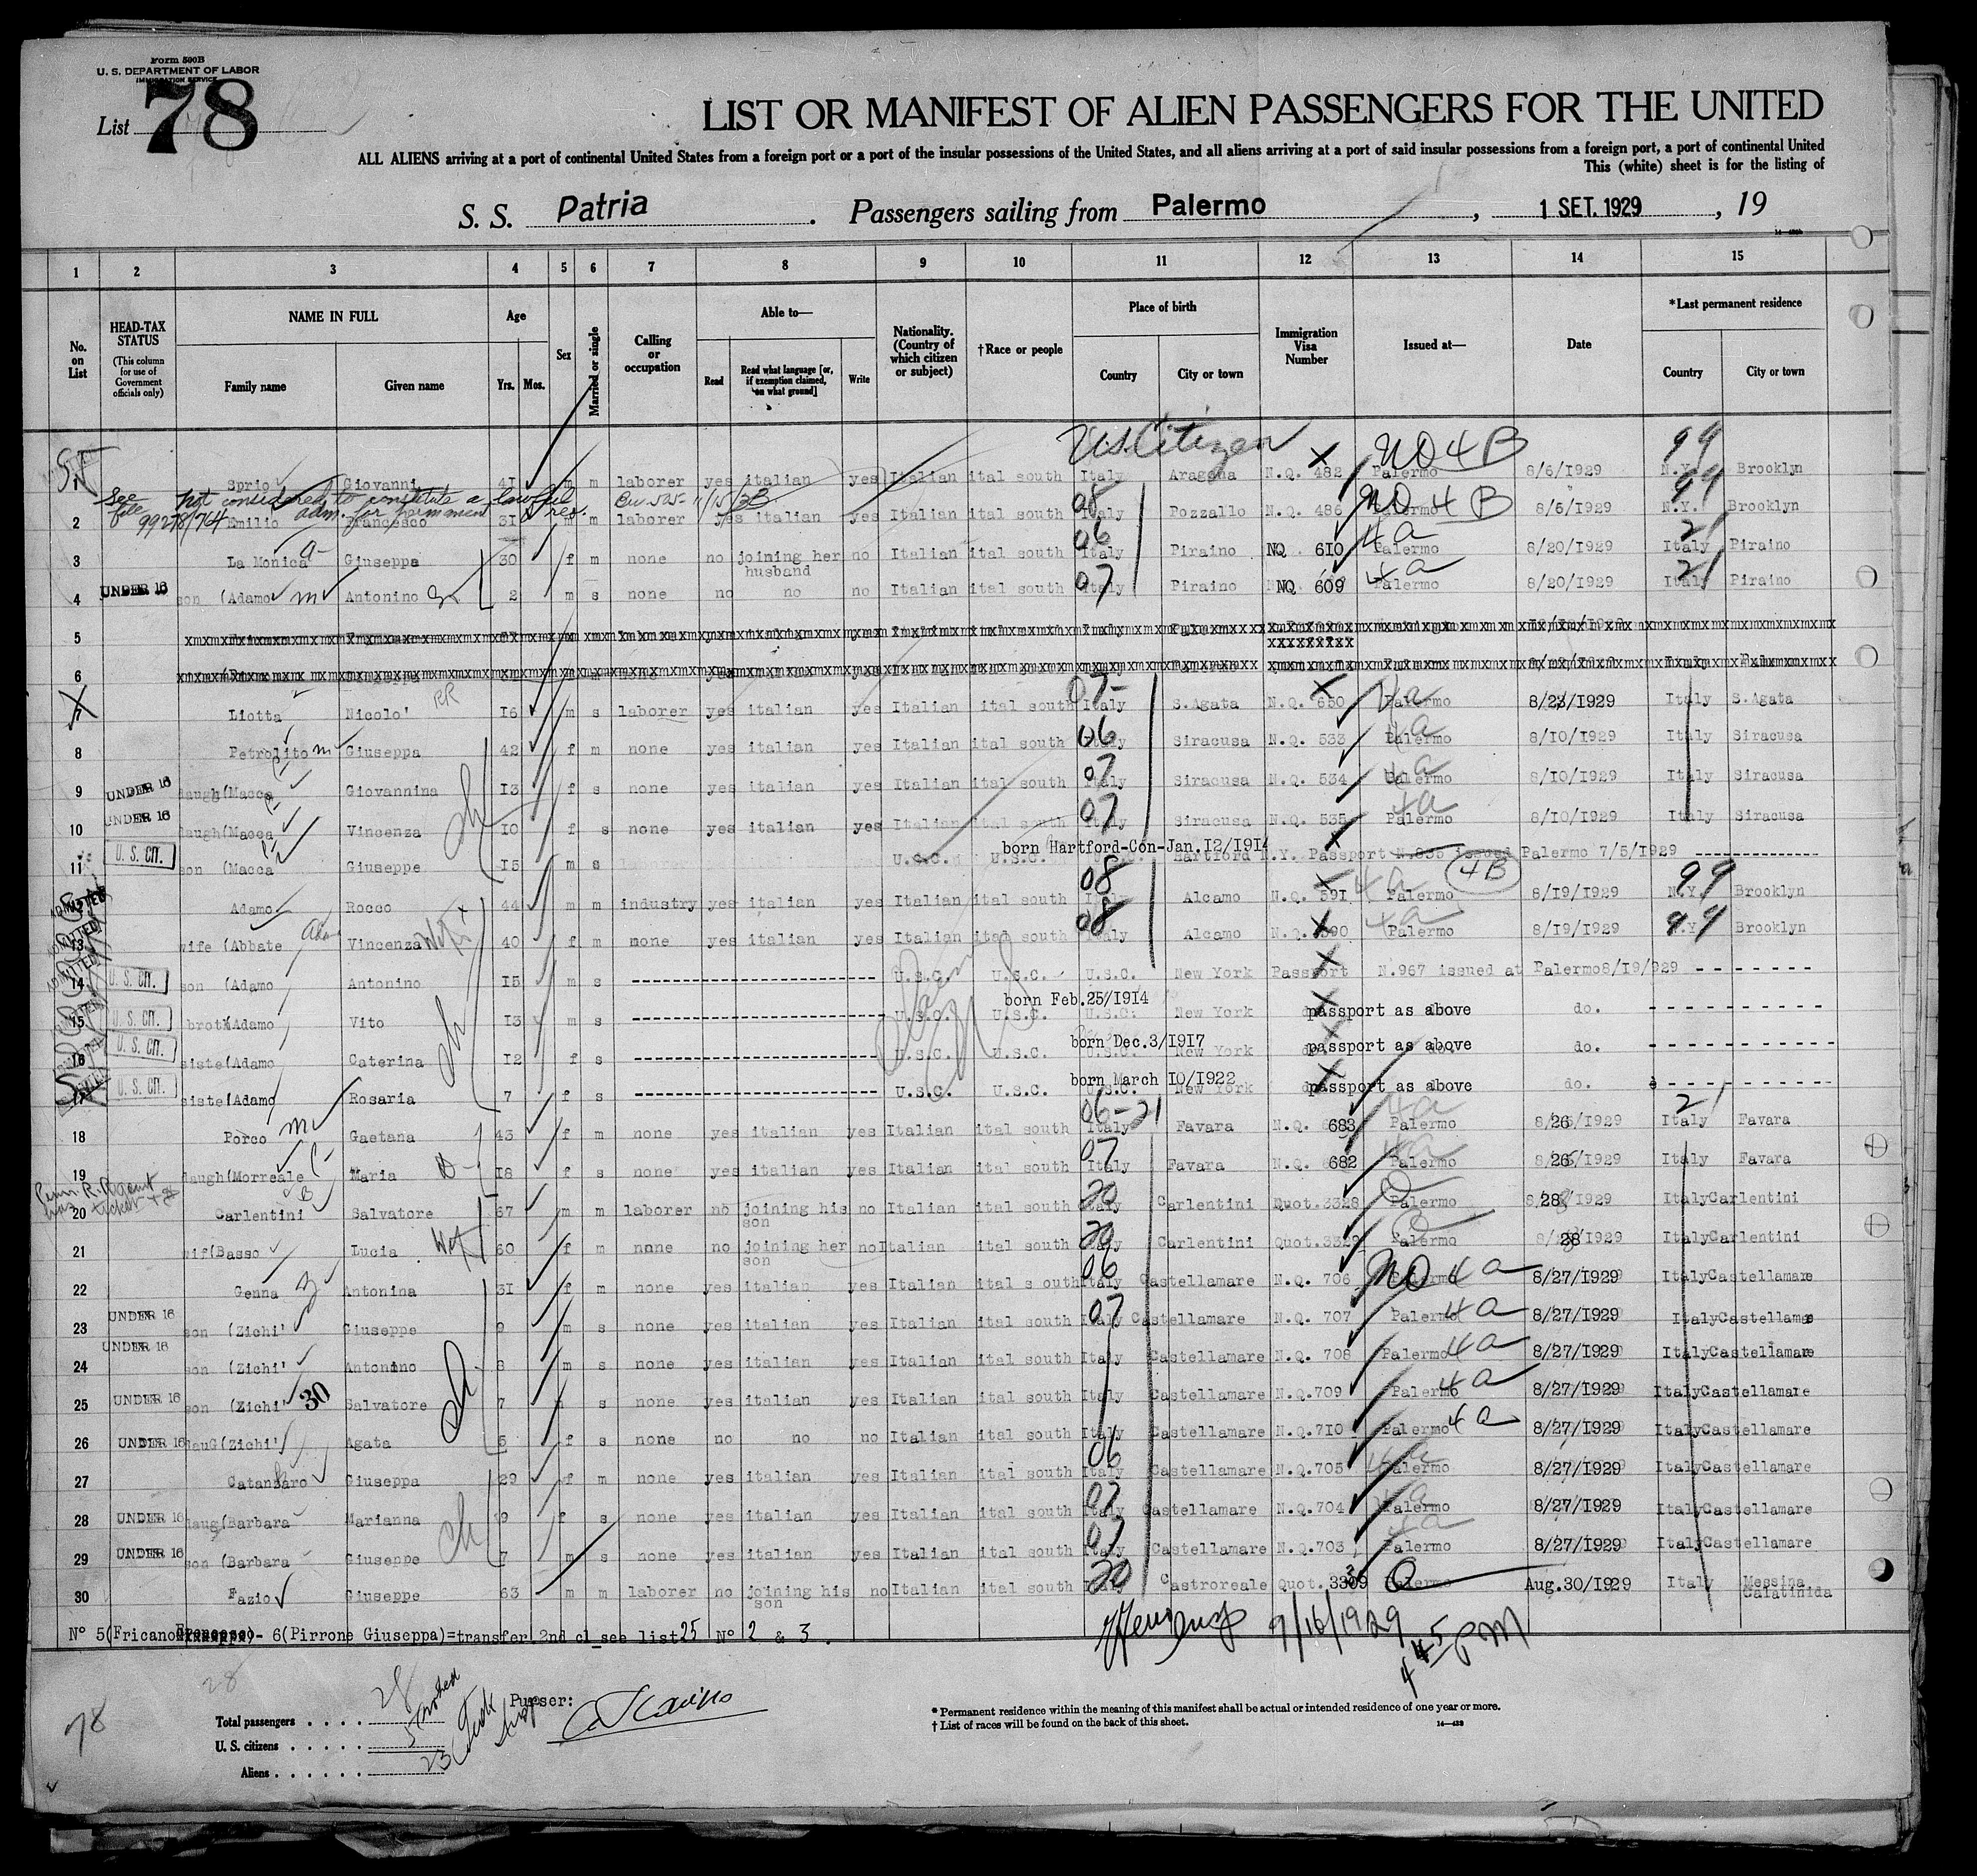 Form 500B
U. S. DEPARTMENT OF LABOR
IMMIGRATION SERVICE
List 78
LIST OR MANIFEST OF ALIEN PASSENGERS FOR THE UNITED
ALL ALIENS arriving at a port of continental United States from a foreign port or a port of the insular possessions of the United States, and all aliens arriving at a port of said insular possessions from a foreign port, a port of continental United
This (white) sheet is for the listing of
S. S. Patria . Passengers sailing from Palermo , 1 SET. 1929 , 19
1 2 3 4 5 6 7 8 9 10 11 12 13 14 15
No. on List
HEAD-TAX STATUS (This column for use of Government officials only)
NAME IN FULL Family name Given name
Age Yrs. Mos.
Sex
Married or single
Calling or occupation
Able to— Read Read what language [or, if exemption claimed, on what ground] Write
Nationality. (Country of which citizen or subject)
†Race or people
Place of birth Country City or town
Immigration Visa Number
Issued at—
Date
*Last permanent residence Country City or town
U.S. Citizen NO 4B 99
1 Sprio Giovanni 41 m m laborer yes italian yes Italian ital south Italy Aragona N.Q. 482 Palermo 8/6/1929 N.Y. Brooklyn
See file 99278/74 not considered to constitute a lawful adm. for permanent res.
2 Emilio Francesco 31 m m laborer yes italian yes Italian ital south Italy Pozzallo N.Q. 486 NO 4B 8/6/1929 N.Y. Brooklyn
3 La Monica Giuseppa 30 f m none no joining her husband no Italian ital south 06 Italy Piraino NQ 610 4a Palermo 8/20/1929 Italy Piraino
4 UNDER 16 son (Adamo Antonino 2 m s none no no no Italian ital south 07 Italy Piraino NQ 609 4a Palermo 8/20/1929 Italy Piraino
5
6
7 Liotta Nicolo' 16 m s laborer yes italian yes Italian ital south 07 Italy S.Agata N.Q. 650 4a Palermo 8/23/1929 Italy S.Agata
8 Petrolito Giuseppa 42 f m none yes italian yes Italian ital south 06 Italy Siracusa N.Q. 533 4a Palermo 8/10/1929 Italy Siracusa
9 UNDER 16 daugh(Macca Giovannina 13 f s none yes italian yes Italian ital south 07 Italy Siracusa N.Q. 534 4a Palermo 8/10/1929 Italy Siracusa
10 UNDER 16 daugh(Macca Vincenza 10 f s none yes italian yes Italian ital south 07 Italy Siracusa N.Q. 535 4a Palermo 8/10/1929 Italy Siracusa
born Hartford-Con-Jan.12/1914
11 U. S. CIT. son (Macca Giuseppe 15 m s U.S.C. U.S.C. Hartford N.Y. Passport N.835 issued Palermo 7/5/1929
12 Adamo Rocco 44 m m industry yes italian yes Italian ital south 08 Italy Alcamo N.Q. 591 4a 4B Palermo 8/19/1929 N.Y. 99 Brooklyn
13 wife (Abbate Vincenza 40 f m none yes italian yes Italian ital south 08 Italy Alcamo N.Q. 590 4a Palermo 8/19/1929 N.Y. 99 Brooklyn
14 U. S. CIT. son (Adamo Antonino 15 m s U.S.C. U.S.C. U.S.C. New York Passport N.967 issued at Palermo 8/19/929
born Feb.25/1914
15 U. S. CIT. broth(Adamo Vito 13 m s U.S.C. U.S.C. U.S.C. New York passport as above do.
born Dec.3/1917
16 U. S. CIT. siste(Adamo Caterina 12 f s U.S.C. U.S.C. New York passport as above do.
born March 10/1922
17 U. S. CIT. siste(Adamo Rosaria 7 f s U.S.C. U.S.C. U.S.C. New York passport as above do.
18 Porco Gaetana 43 f m none yes italian yes Italian ital south 06-21 Italy Favara N.Q. 683 4a Palermo 8/26/1929 Italy Favara
19 daugh(Morreale Maria 18 f s none yes italian yes Italian ital south 07 Italy Favara N.Q. 682 4a Palermo 8/26/1929 Italy Favara
20 Carlentini Salvatore 67 m m laborer no joining his son no Italian ital south 20 Italy Carlentini Quot.3328 Palermo 8/28/1929 Italy Carlentini
21 wif(Basso Lucia 60 f m none no joining her son no Italian ital south 20 Italy Carlentini Quot.3329 Palermo 8/28/1929 Italy Carlentini
22 Genna Antonina 31 f m none yes italian yes Italian ital south 06 Italy Castellamare N.Q. 706 NO 4a Palermo 8/27/1929 Italy Castellamare
23 UNDER 16 son (Zichi' Giuseppe 9 m s none yes italian yes Italian ital south 07 Italy Castellamare N.Q. 707 Palermo 4a 8/27/1929 Italy Castellamare
24 UNDER 16 son (Zichi' Antonino 8 m s none yes italian yes Italian ital south Italy Castellamare N.Q. 708 Palermo 4a 8/27/1929 Italy Castellamare
25 UNDER 16 son (Zichi' 30 Salvatore 7 s none yes italian yes Italian ital south Italy Castellamare N.Q.709 Palermo 4a 8/27/1929 Italy Castellamare
26 UNDER 16 dauG(Zichi' Agata 5 f s none no no no Italian ital south Italy Castellamare N.Q.710 Palermo 4a 8/27/1929 Italy Castellamare
27 Catanzaro Giuseppa 29 f m none yes italian yes Italian ital south 06 Italy Castellamare N.Q.705 4a Palermo 8/27/1929 Italy Castellamare
28 UNDER 16 daug(Barbara Marianna 9 f s none yes italian yes Italian ital south 07 Italy Castellamare N.Q.704 4a Palermo 8/27/1929 Italy Castellamare
29 UNDER 16 son (Barbara Giuseppe 7 m s none yes italian yes Italian ital south 07 Italy Castellamare N.Q.703 4a Palermo 8/27/1929 Italy Castellamare
30 Fazio Giuseppe 63 m m laborer no joining his son no Italian ital south 20 Castroreale Quot.3309 Palermo Aug.30/1929 Italy Messina
N° 5(Fricano - 6(Pirrone Giuseppa)=transfer 2nd cl_see list 25 N° 2 & 3.
9/16/1929 4 45 PM
78
28
Total passengers . . . . 28
U. S. citizens . . . . . 5
Aliens . . . . . . 23
Purser:
* Permanent residence within the meaning of this manifest shall be actual or intended residence of one year or more.
† List of races will be found on the back of this sheet.